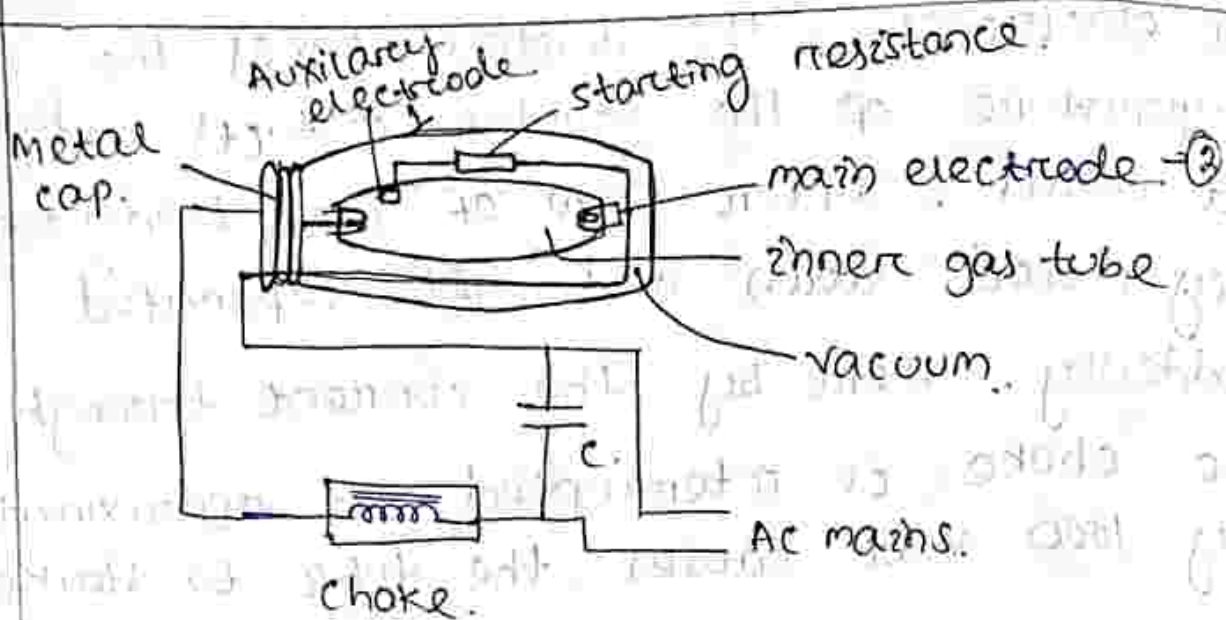 Auxilarey
electrode
starting resistance.
Metal
cap.
main electrode -②
inner gas tube
vacuum.
C.
AC mains.
Choke.